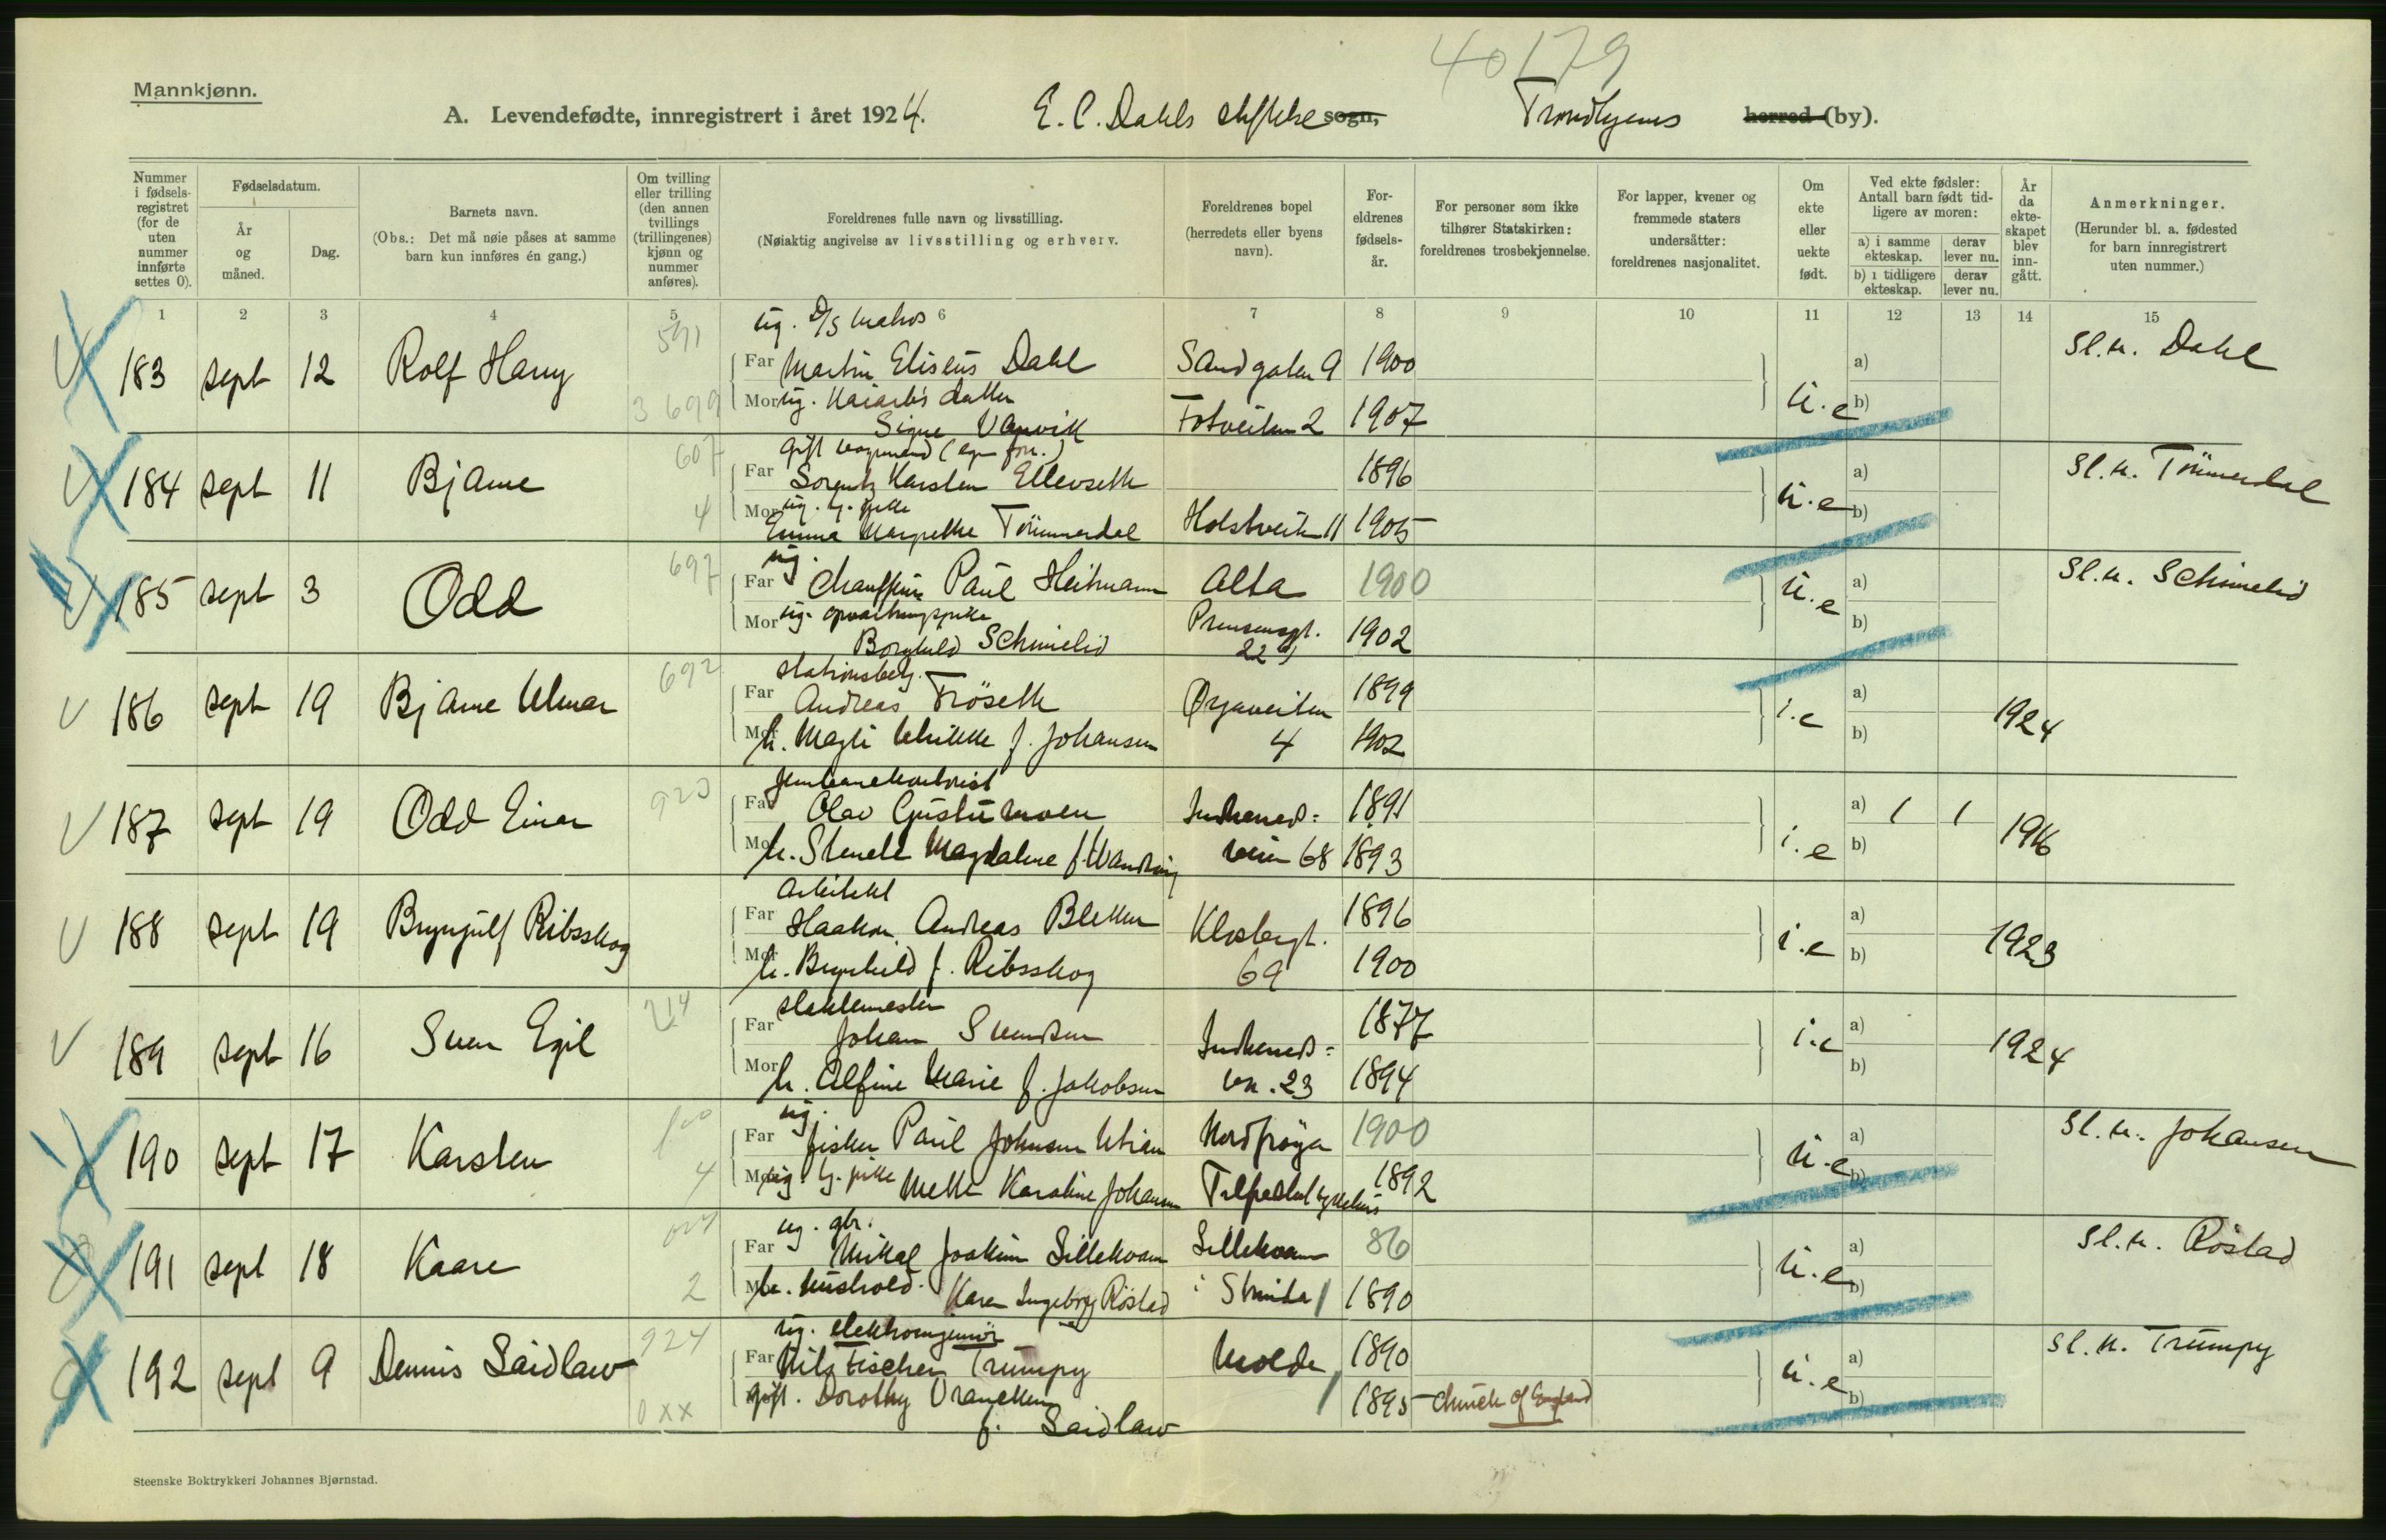 40179
Mannkjønn.
A. Levendefødte, innregistrert i året 1924. E. C. Dahls stiftelse sogn, Trondhjems herred (by).
Nummer i fødselsregistret (for de uten nummer innførte settes 0).
Fødselsdatum.
År og måned.
Dag.
Barnets navn.
(Obs.: Det må nøie påses at samme barn kun innføres én gang.)
Om tvilling eller trilling (den annen tvillings (trillingenes) kjønn og nummer anføres).
Foreldrenes fulle navn og livsstilling.
(Nøiaktig angivelse av livsstilling og erhverv.
Foreldrenes bopel (herredets eller byens navn).
Foreldrenes fødselsår.
For personer som ikke tilhører Statskirken: foreldrenes trosbekjennelse.
For lapper, kvener og fremmede staters undersåtter: foreldrenes nasjonalitet.
Om ekte eller uekte født.
Ved ekte fødsler: Antall barn født tidligere av moren:
a) i samme ekteskap.
derav lever nu.
b) i tidligere ekteskap.
derav lever nu.
År da ekteskapet blev inngått.
Anmerkninger.
(Herunder bl. a. fødested for barn innregistrert uten nummer.)
1 2 3 4 5 6 7 8 9 10 11 12 13 14 15
591 ug. D/S matros
183 sept 12 Rolf Harry Far Martin Eliseus Dahl Sandgaten 9 1900 u.e a) b) Sl.n. Dahl
3 699 Mor ug.
Signe Vanvik Fotveiten 2 1907
607 gift
184 sept 11 Bjarne Far Sorentz Karsten Ellevseth 1896 u.e a) b) Sl.n. Tömmerdal
4 Mor ug. tj. pike
Emma Margrethe Tömmerdal Holstveiten 11 1905
697 ug.
185 sept 3 Odd Far Chauffeur Paul Heitmann Alta 1900 u.e a) b) Sl.n. Schmelid
Mor ug. opvartningspike
Borghild Schmelid Prinsensgt. 22 1902
692 stationsbetj.
186 sept 19 Bjarne Far Andreas Fröseth Ørjaveiten 4 1899 i.e a) b) 1924
Mor h. Magli f. Johansen 1902
923 jernbanekontorist
187 sept 19 Odd Einar Far Olav Gustu Moen Indherredsveien 68 1891 i.e a) 1 1 b) 1916
Mor h. Magdalene f. 1893
arkitekt
188 sept 19 Brynjulf Ribsskog Far Haakon Andreas Blekken Klostergt. 69 1896 i.e a) b) 1923
Mor h. Brynhild f. Ribsskog 1900
214 slaktemester
189 sept 16 Sven Egil Far Johan Svendsen Indherreds- vn. 23 1877 i.e a) b) 1924
Mor h. Alfine Marie f. Jakobsen 1894
ug.
190 sept 17 Karsten Far fisker Paul Johnsen Utrian Nordfrøya 1900 u.e a) b) Sl.n. Johansen
4 Mor ug. tj. pike Mette Karoline Johansen 1892
ug. gbr.
191 sept 18 Kaare Far Mikal Joakim Sillekvam Sillekvam 86 u.e a) b) Sl.n. Röstad
2 Mor h. hushold. Karen Ingeborg Röstad i Strinda 1890
924 ug. elektroingeniör
192 sept 9 Dennis Laidlaw Far Nils Fischer Trumpy Molde 1890 u.e a) b) Sl.n. Trumpy
0xx Mor gift. Dorothy Vrancken 1895 Church of England
f. Laidlaw
Steenske Boktrykkeri Johannes Bjørnstad.